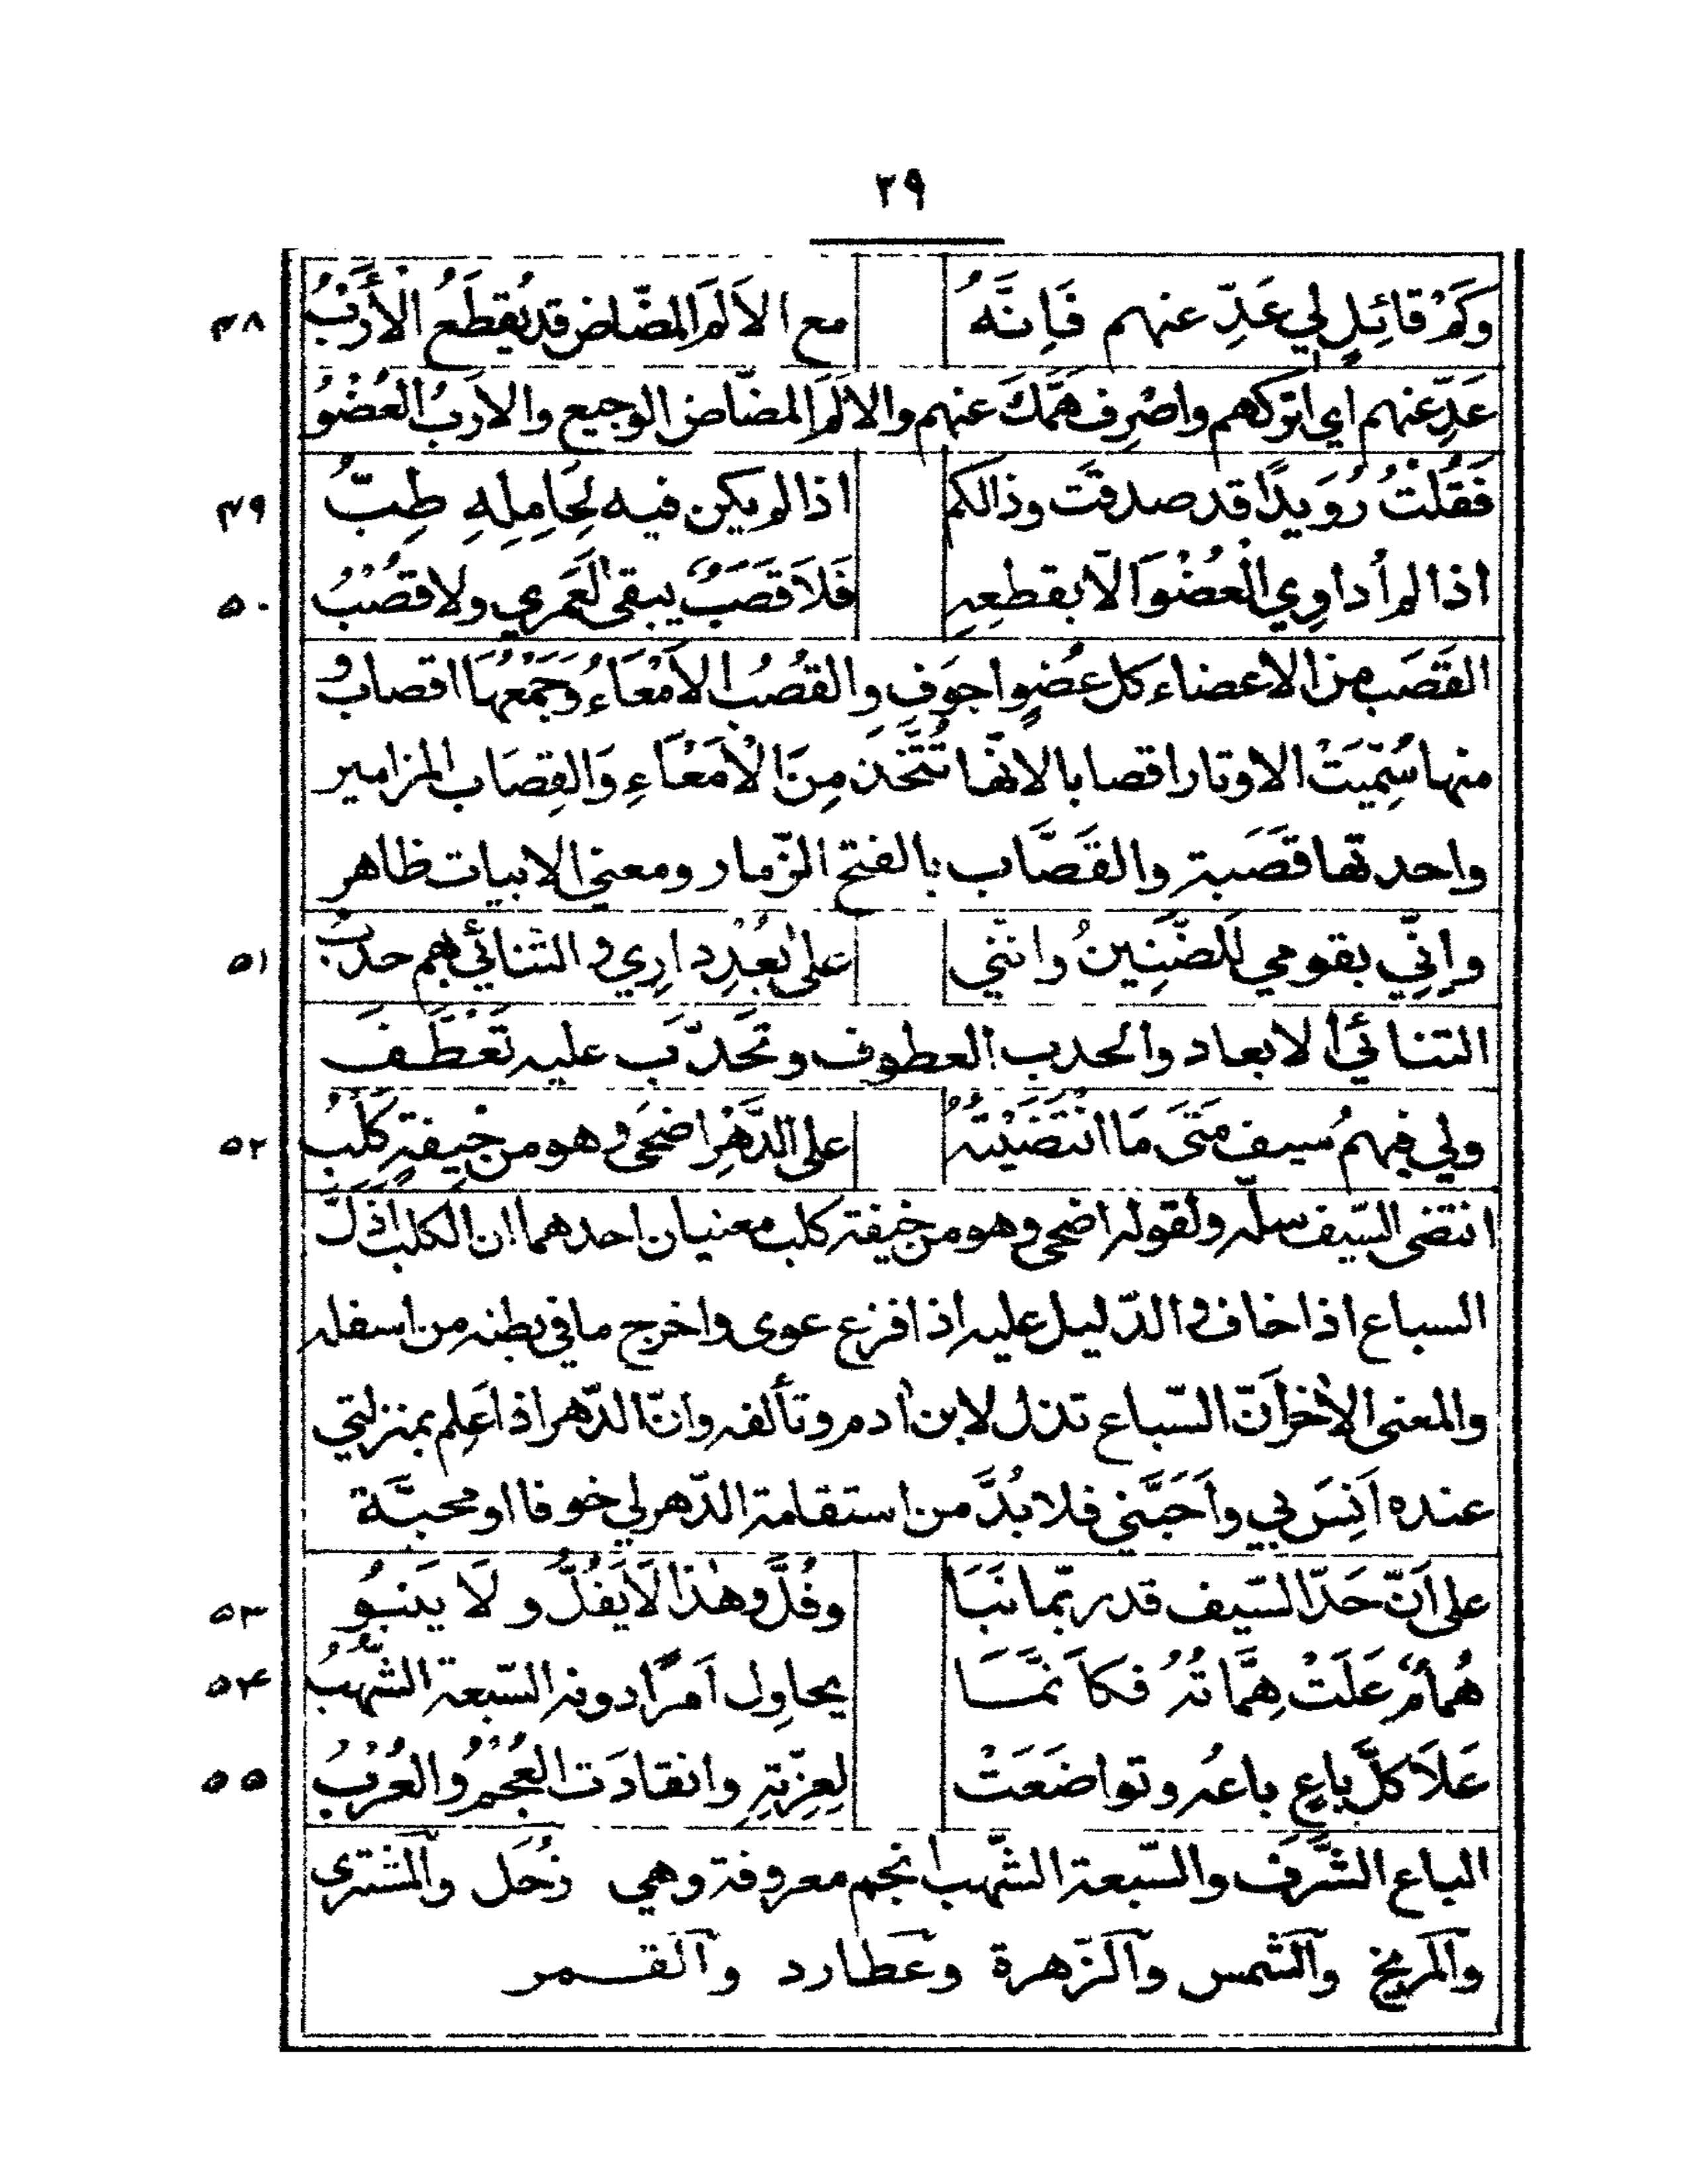 ٢٩
وَكَمْ قَائِلٍ لِي عَدِّ عنهم فَإِنَّهُ مع الاَلَمِ المضّاض قد يُقطَعُ الْأَرْبُ ٤٨
عَدِّ عنهم اي اتركهم واصْرِف هَمَّكَ عنهم والالَمُ المضّاض الوجيع والارَبُ العُضْوُ
فَقُلْتُ رُوَيدًا قد صدقتَ وذالكم اذا لم يكن فيه لِحَامِلِهِ طِبّ ٤٩
اذا لم أداوِي الْعُضْوَ الّا بقطعِهِ فَلَا قَصَبٌ يبقى لَعَمري ولا قُصْبُ ٥٠
القَصَب من الاعضاء كل عُضوٍ اجوَفٍ والقُصْبُ الاَمْعَاءُ وَجَمْعُهَا اقصاب و
منها سُمِّيَتْ الاوتار اقصابا لانّها تُتَّخَذ مِنَ الْاَمْعَاءِ وَالقِصَاب المزامير
واحدتها قَصَبة والقَصَّاب بالفتح الزّمار ومعنى الابيات ظاهر
وإِنِّي بقومي لَلضَّنِينُ وانني على بُعْدِ دارِي و التنائي بهم حدْبُ ٥١
التنائي الابعاد والحدب العطوف وتحَدَّب عليه تَعَطَّف
ولي فيهمُ سيف مَتَى مَا انْتَضَيْتُهُ على الدَّهْرِ اضحى وهو من خِيفةٍ كَلْبُ ٥٢
انتضى السّيف سلّه ولقوله اضحى وهو من خِيفة كلب معنيان احدهما ان الكلب اذلّ
السباع اذا خاف و الدّليل عليه اذا فزع عوى واخرج ما في بطنه من اسفله
والمعنى الاٰخر أَنّ السّباع تذل لابن اٰدم وتألفه وانّ الدّهر اذا عَلِم بمنزلتي
عنده اَنِسَ بي وأَحَبَّني فلا بُدَّ من استقامة الدّهر لي خوفا او محبّة
على أَنّ حَدّ السّيف قد ربّما نَبَا وفُلَّ وهٰذا لَا يُفَلُّ و لَا ينبُو ٥٣
هُمامٌ عَلَتْ هِمَّاتُهُ فكاَنمَّا يحاوِل اَمرًا دونه السّبعة الشّهْبُ ٥٤
عَلَا كلَّ باعٍ باعُه وتواضَعَتْ لِعِزّتِهِ وانقادَت العُجْمُ والعُرْبُ ٥٥
الباع الشَّرَف والسّبعة الشّهب انجم معروفة وهي زُحَل والمشتري
والمرّيخ والشّمس والزّهرة وعطارد والقمر